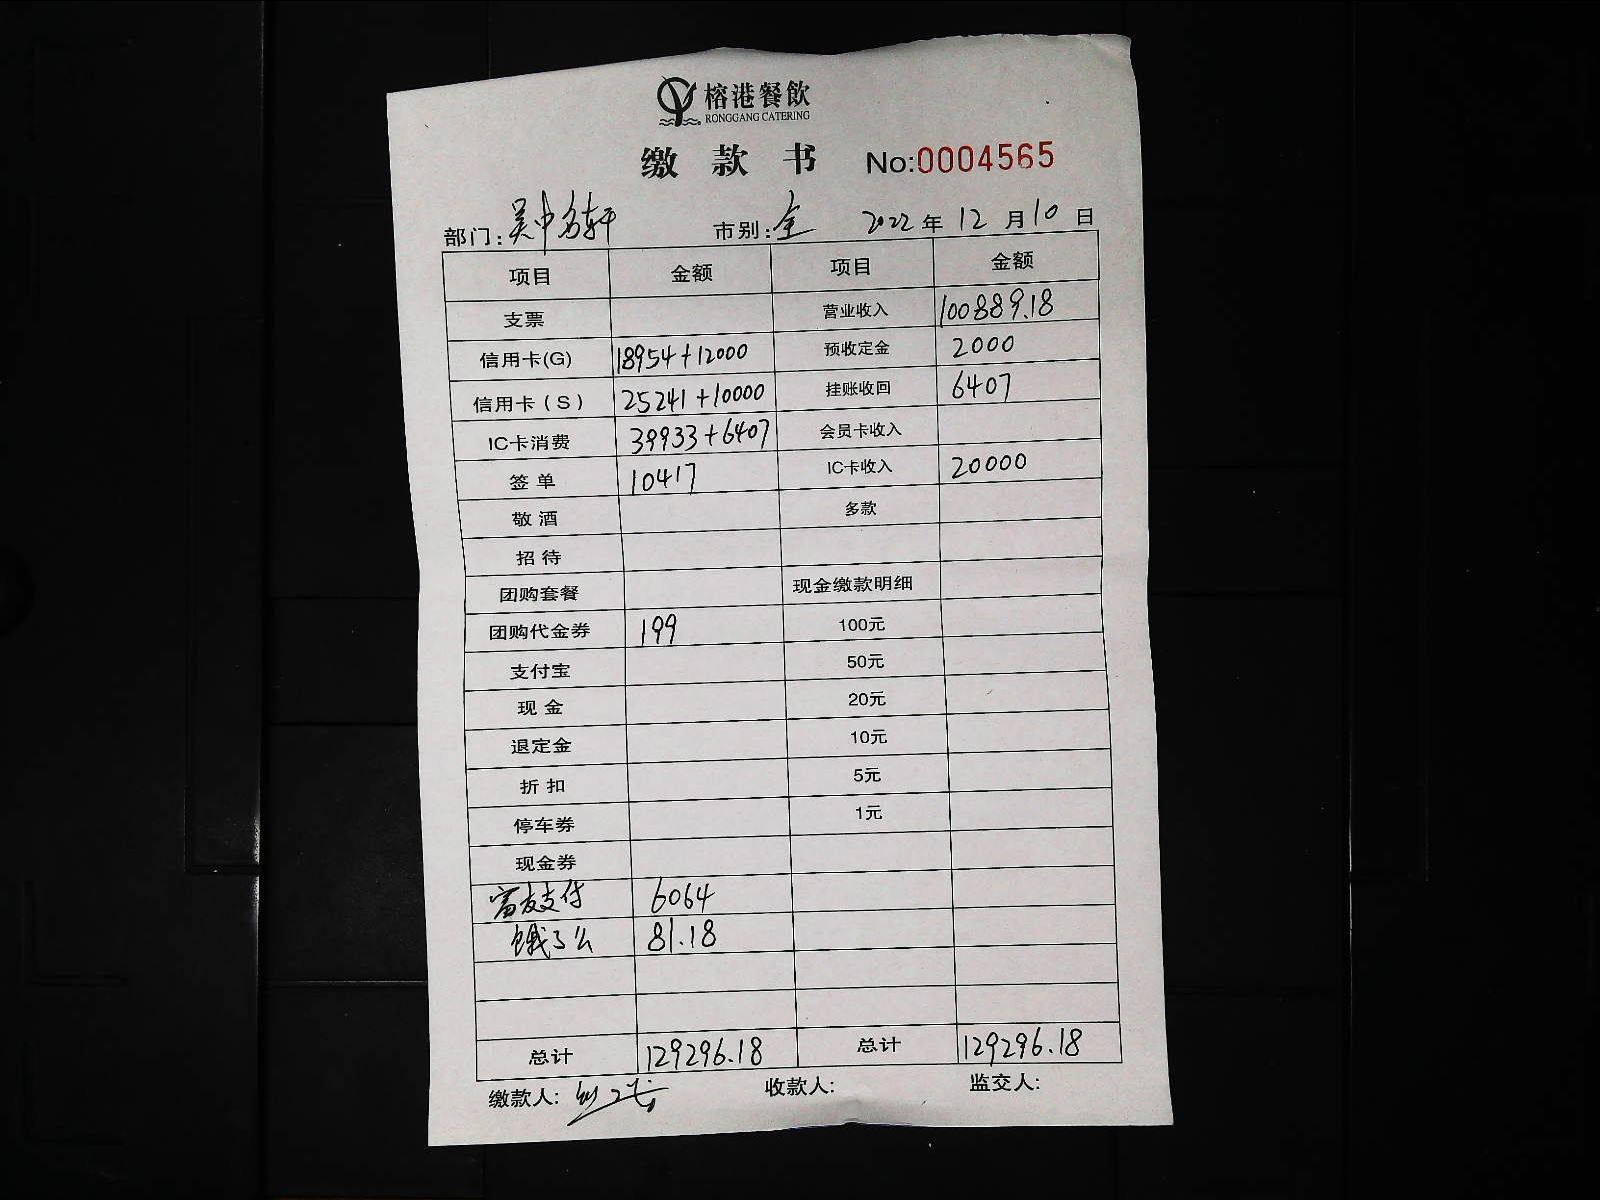 榕港餐飲
RONGGANG CATERING
缴款书 No:0004565
部门: 吴中名轩 市别: 全 2022年12月10日
项目 金额 项目 金额
支票 营业收入 100889.18
信用卡(G) 18954+12000 预收定金 2000
信用卡(S) 25241+10000 挂账收回 6407
IC卡消费 39933+6407 会员卡收入
签单 10417 IC卡收入 20000
敬酒 多款
招待
团购套餐 现金缴款明细
团购代金券 199 100元
支付宝 50元
现金 20元
退定金 10元
折扣 5元
停车券 1元
现金券
富友支付 6064
饿了么 81.18
总计 129296.18 总计 129296.18
缴款人: 收款人: 监交人: